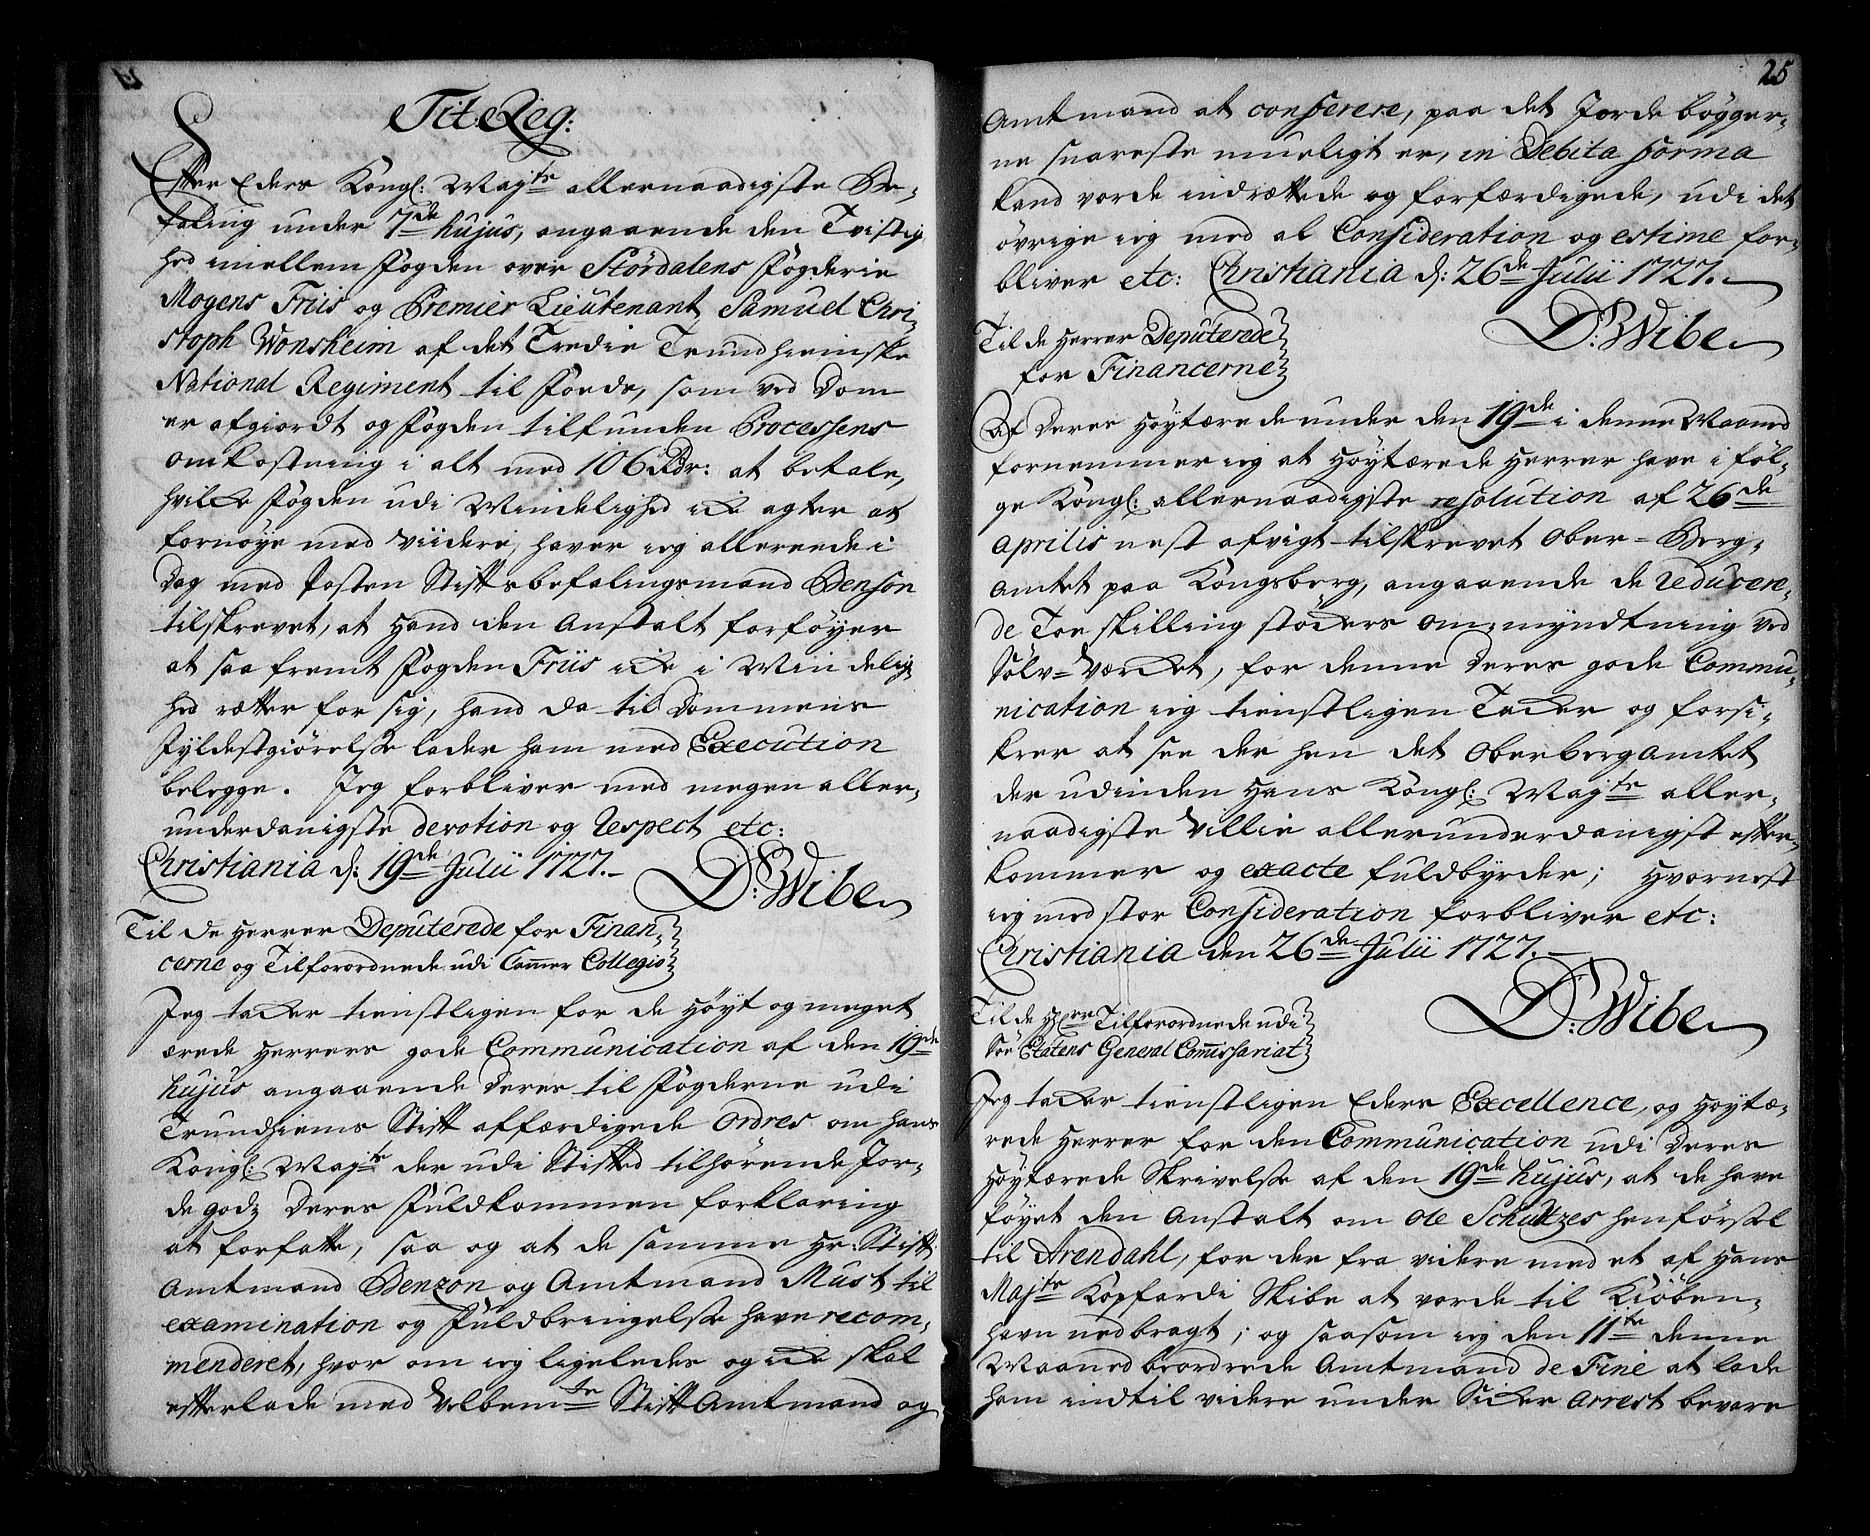 Tit: Reg:
Efter Eders Kongl: Maj.te allernaadigste Be-
faling under 7.de hujus, angaaende den Tvistig
hed imellem Fogden over Stördalens Fogderie
Mogens Friis og Premier Lieutenant Samuel Chri-
stoph Wonsheim af det Tredie Trundhiemske
National Regiment til Fods, som ved Dom
er afgiordt og Fogden tilfunden Processens
omkostning i alt med 106 Rdr: at betale,
hvilcke Fogden udi Mindelighed icke agter at
fornøye med viidere, haver ieg allereede i
Dag med Posten Stiftsbefalingsmand Benson
tilskrevet, at Hand den Anstalt forføyer
at saa fremt Fogden Friis icke i Mindelig-
hed rætter for sig, hand da til Dommens
Fyldestgiørelse lader ham med Execution
belegge. Jeg forbliver med megen aller-
underdanigste devotion og Respect etc:
Christiania d: 19.de Julii 1727.
D: Wibe
Til de Herrer Deputerede for Finan-
cerne og Tilforordnede udi Cammer Collegio
Jeg tacker tienstligen for de Høyt og meget
ærede Herrers gode Communication af den 19.de
hujus angaaende Deres til Fogderne udi
Trundhiems Stift affærdigede Ordres om hans
Kongl: Maj.te der udi Stifted tilhørende Jor-
de godz Deres Fuldkommen forklaring
at forfatte, saa og at de samme Hr: Stift
Amtmand Benzon og Amtmand Must til
examination og Fuldbringelse have recom-
menderet, hvor om ieg ligeledes og icke skal
efterlade med Velbem.te Stift Amtmand og
25
Amtmand at conferere, paa det Jorde bøgger-
ne snareste mueligt er, in Debita forma
kand vorde indrættede og forfærdigede, udi det
øvrige ieg med al Consideration og estime for-
bliver etc: Christiania d: 26.de Julii 1727.
D: Wibe
Til de Herrer Deputerede
for Financerne
Af Deres Høytærede under den 19.de i denne Maaned
fornemmer ieg at Høytærede Herrer have i føl-
ge Kongl: allernaadigste resolution af 26.de
Aprilis nest afvigt tilskrevet Ober-Berg-
Amtet paa Kongsberg, angaaende de reducere-
de Toe skilling støckers om-myndtning ved
Sölv-Værcket, for denne Deres gode Commu-
nication ieg tienstligen Tacker og forsi-
krer at see der hen det Oberberg Amtet
der udinden Hans Kongl: Maj.te aller-
naadigste Villie allerunderdanigst efter-
kommer og exacte fuldbyrder; Hvornest
ieg med stor Consideration forbliver etc:
Christiania den 26.de Julii 1727.
D: Wibe
Til de H.rer Tilforordnede udi
Søe Etatens General Commissariat
Jeg tacker tienstligen Eders Excellence, og Høytæ-
rede Herrer for den Communication udi Deres
Høytærede Skrivelse af den 19.de hujus, at de have
føyet den Anstalt om Ole Schultzes henførsel
til Arendahl, for der fra videre med et af Hans
Maj.te Kopfardi Skibe at vorde til Kiöben-
havn nedbragt; og saasom ieg den 11.te denne
Maaned beordrede Amtmand de Fine at lade
ham indtil videre under Sicker Arrest bevare